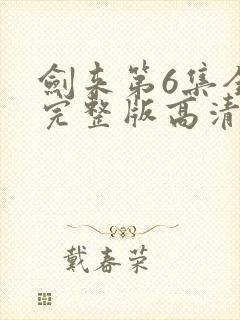 劍来第6集全
完整版高清
戴春荣